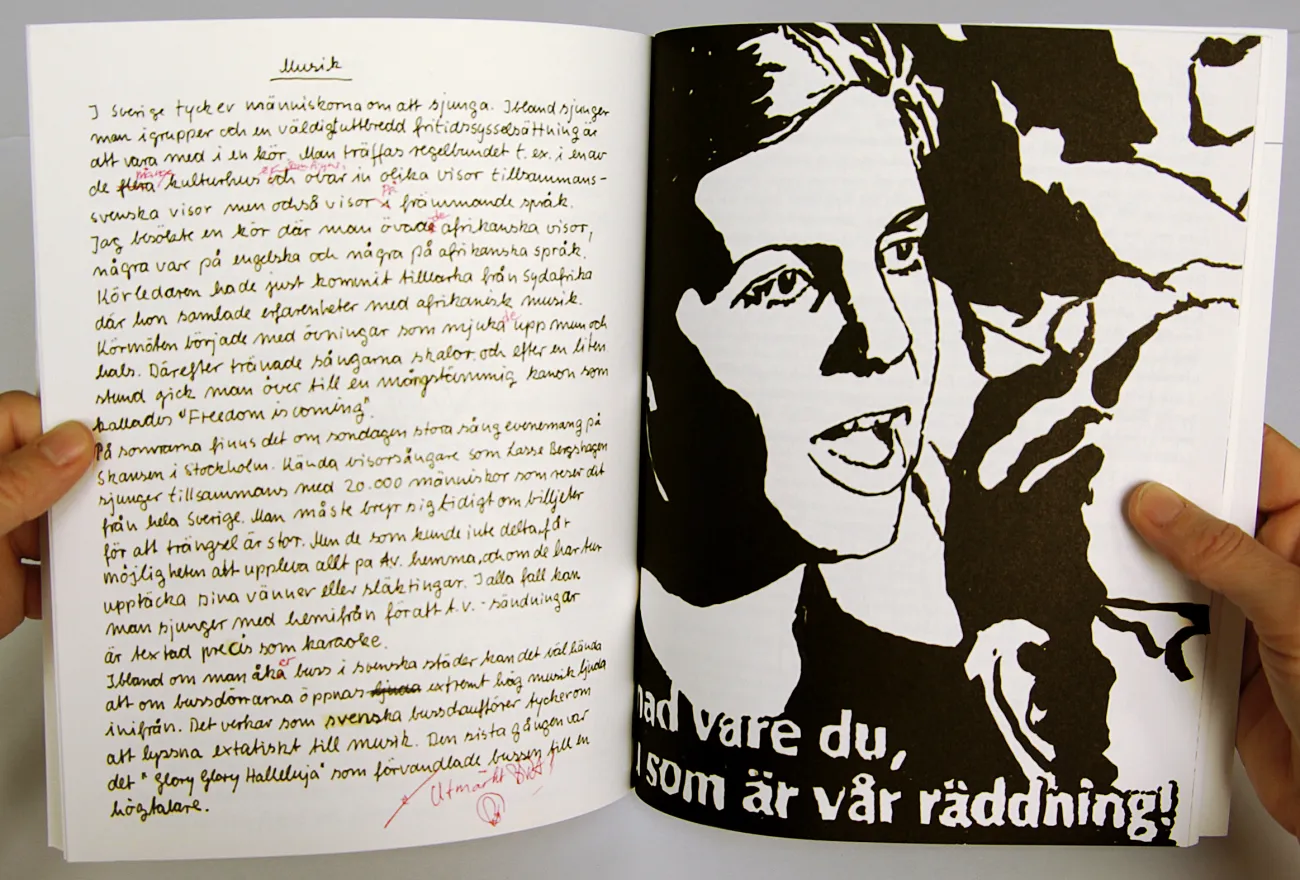 Musik
I Sverige tycker människorna om att sjunga. Ibland sjunger
man i grupper och en väldigt utbredd fritidssysselsättning är
att vara med i en kör. Man träffas regelbundet t. ex. i en av
många er
de flera kulturhus och övar in olika visor tillsammans-
på
svenska visor men också visor i främmande språk.
de
Jag besökte en kör där man övade afrikanska visor,
några var på engelska och några på afrikanska språk.
Körledaren hade just kommit tillbaka från Sydafrika
där hon samlade erfarenheter med afrikanisk musik.
de
Körmöten började med övningar som mjuka upp mun och
hals. Därefter tränade sångarna skalor och efter en liten
stund gick man över till en mångstämmig kanon som
kallades "Freedom is coming".
På somrarna finns det om sondagen stora sång evenemang på
Skansen i Stockholm. Kända visorsångare som Lasse Berghagen
sjunger tillsammans med 20.000 människor som reser dit
från hela Sverige. Man måste bryr sig tidigt om billjeter
för att trängsel är stor. Men de som kunde inte delta får
möjligheten att uppleva allt pa t.v. hemma, och om de har tur
upptäcka sina vänner eller släktingar. I alla fall kan
man sjunger med hemifrån för att t.v. - sändningar
är textad precis som karaoke.
er
Ibland om man åka buss i svenska städer kan det väl hända
att om bussdörrarna öppnas ljuda extremt hög musik ljuda
inifrån. Det verkar som svenska bussdaufförer tycker om
att lyssna extatiskt till musik. Den sista gången var
det "Glory Glory Halleluja" som förvandlade bussen till en
högtalare.
Utmärkt
nad vare du,
som är vår räddning!